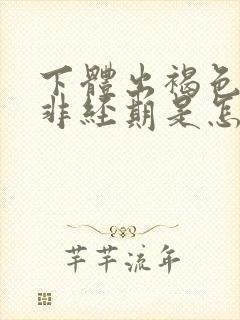 下體出褐色
非經期是怎
芊芊流年